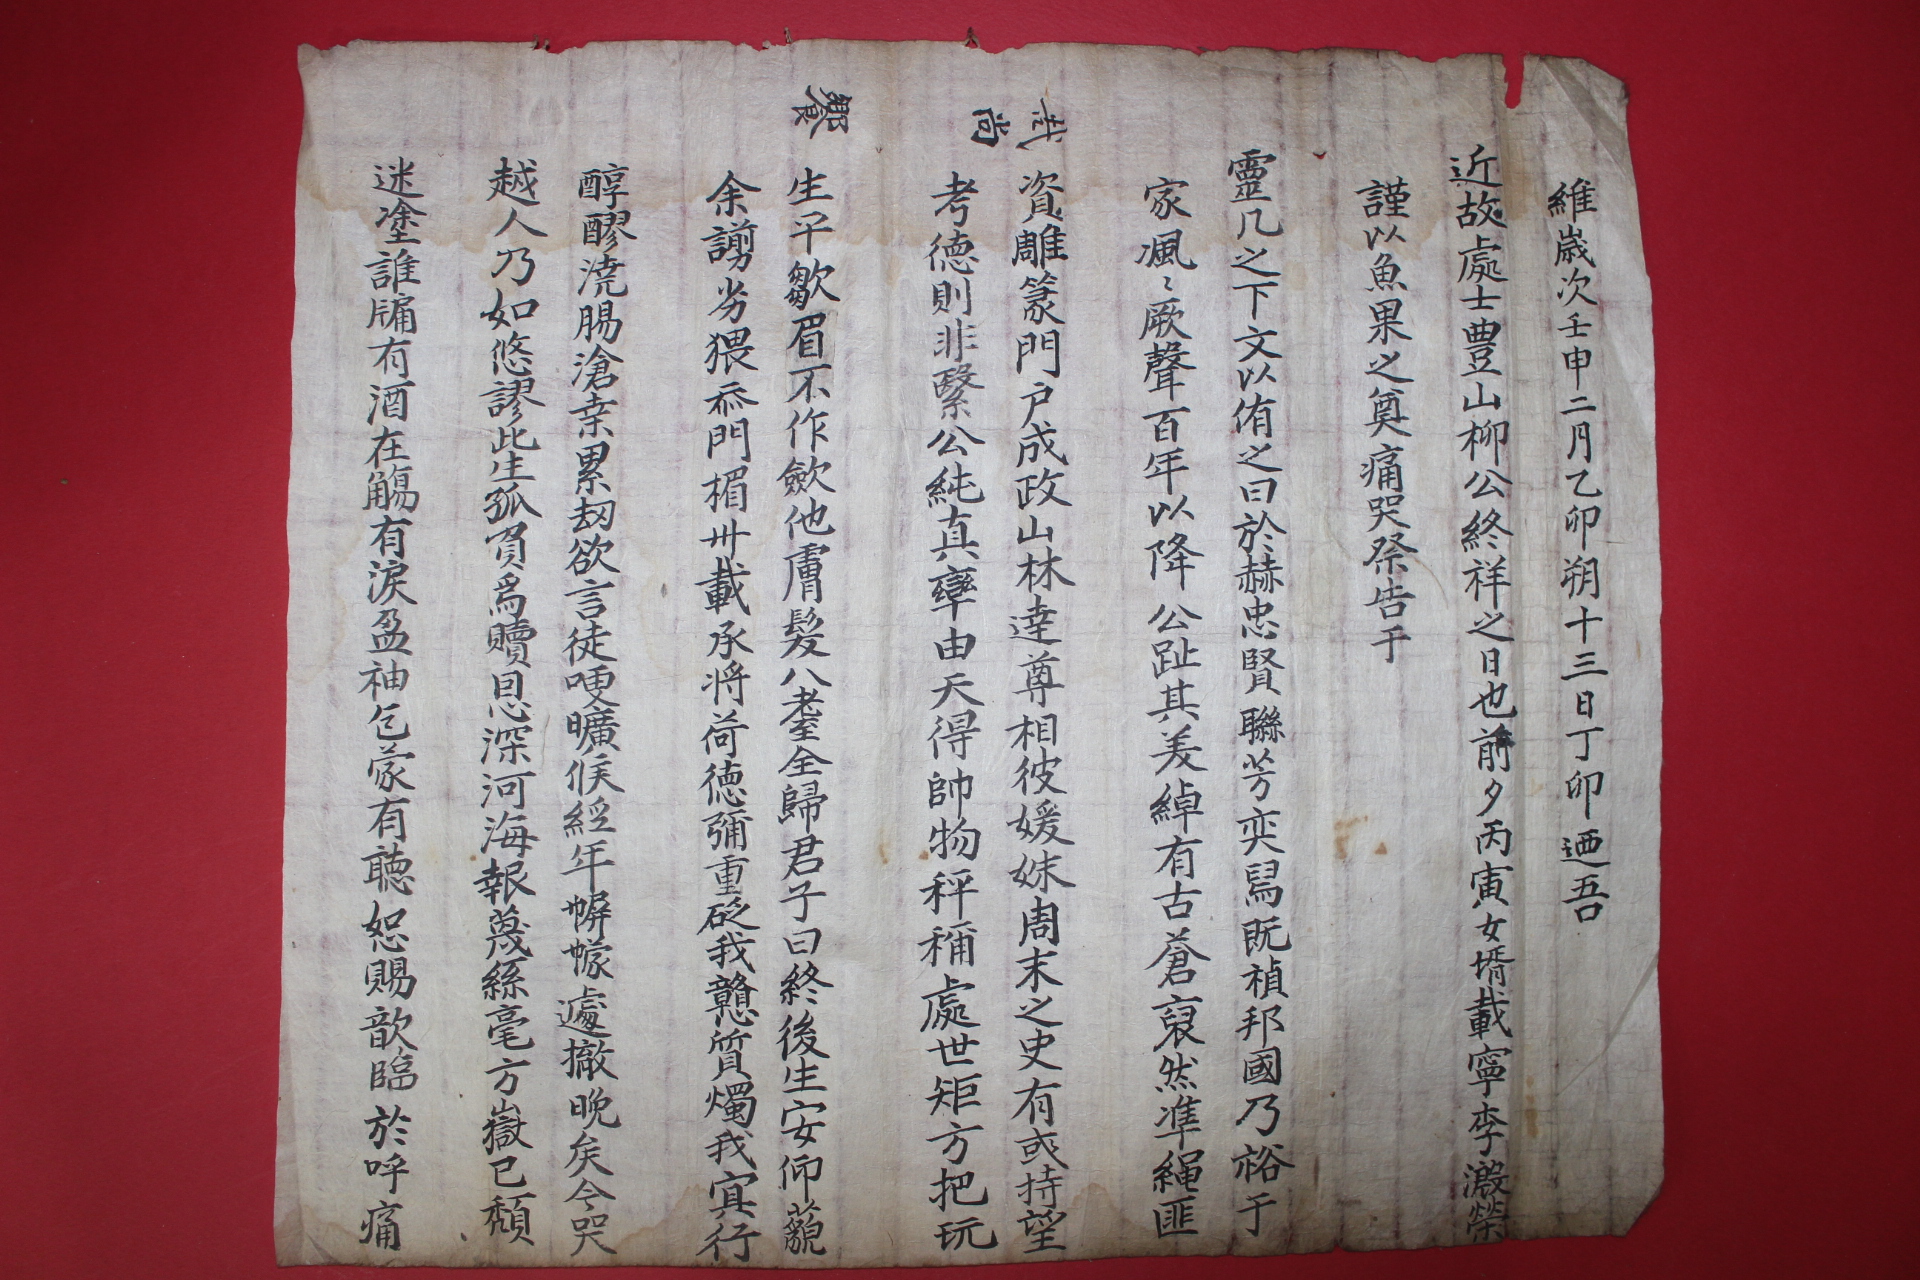 維歲次壬申二月乙卯朔十三日丁卯迺吾
近故處士豊山柳公終祥之日也前夕丙寅女壻載寧李澱榮
謹以魚果之奠痛哭祭告于
靈几之下文以侑之曰於赫忠賢聯芳奕舃旣禎邦國乃裕于
家渢〻厥聲百年以降公趾其美綽有古蒼裒然準繩匪
資雕篆門戶成政山林達尊相彼媛姝周末之史有或持望
考德則非繄公純真率由天得帥物秤稱處世矩方把玩
生平皺眉不作歛他膚髮八耋全歸君子曰終後生安仰藐
余謭劣猥忝門楣卅載承將荷德彌重砭我戇質燭我冥行
醇醪澆腸滄桒累劫欲言徒哽曠候經年帡幪遽撤晚矣今哭
越人乃如悠謬此生孤負爲贖恩深河海報蔑絲毫方嶽已頹
迷塗誰牖有酒在觴有淚盈袖乞蒙有聽恕賜歆臨於呼痛
赴
尚
饗